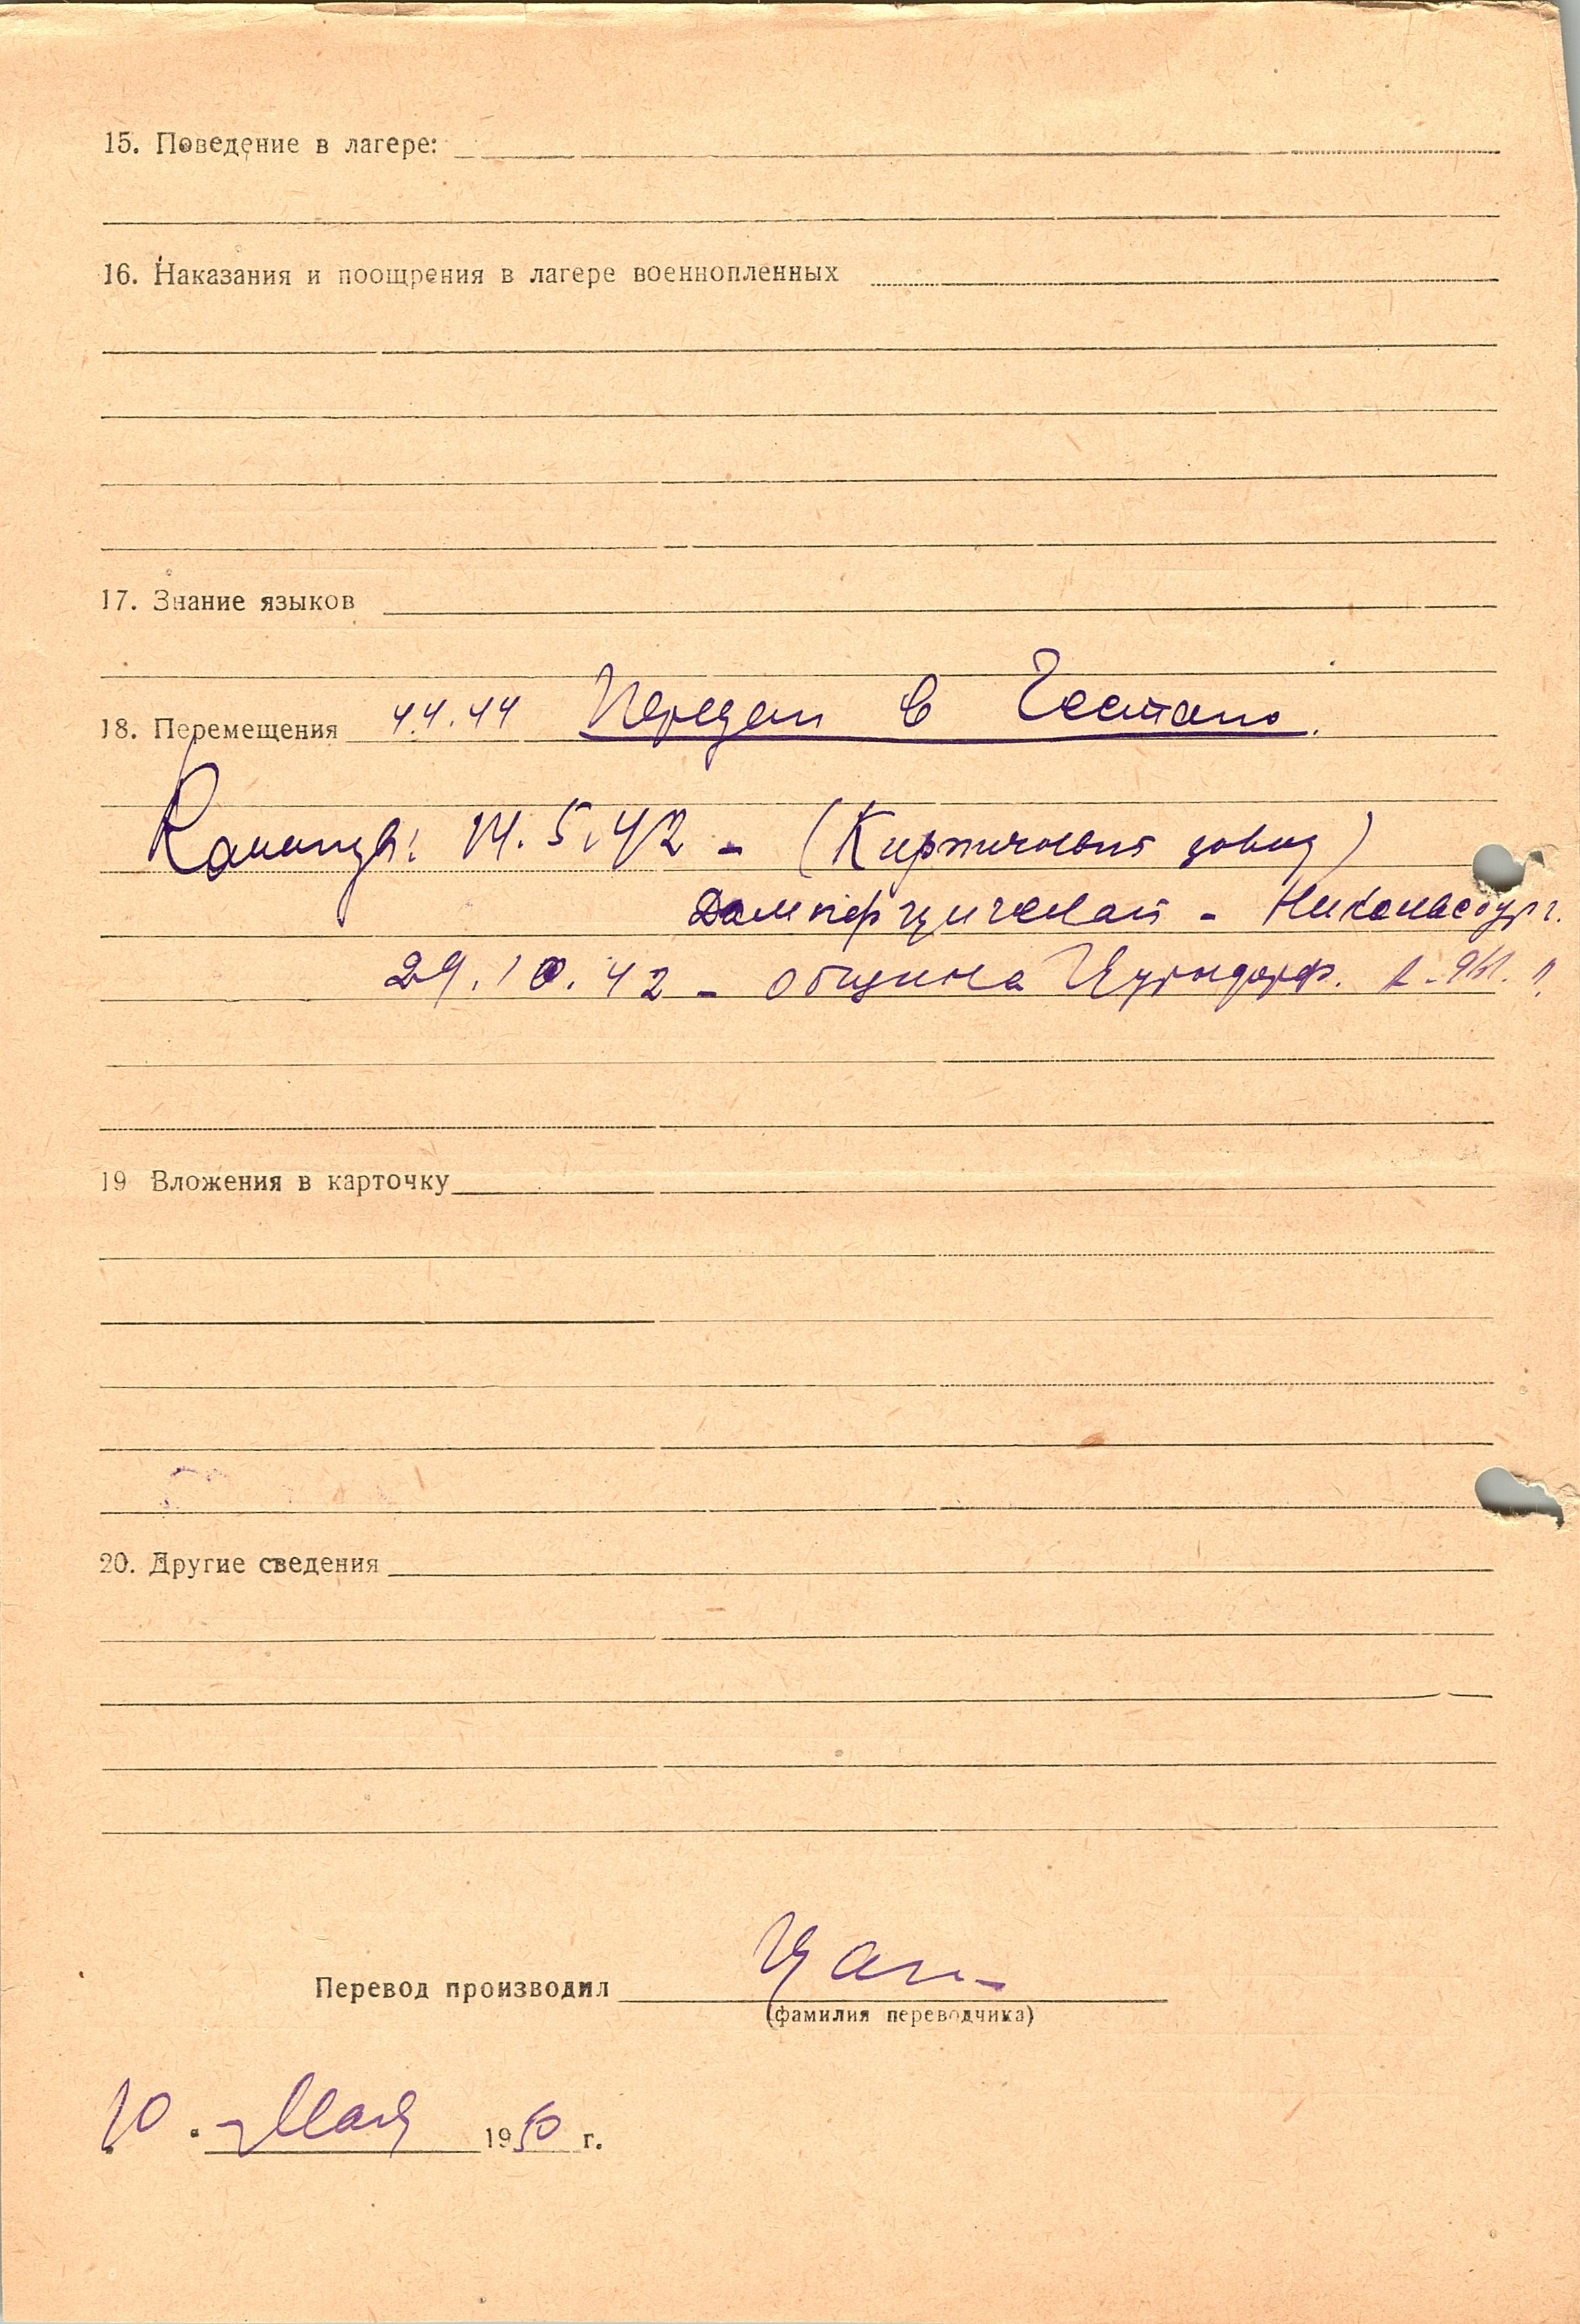 15. Поведение в лагере:
16. Наказания и поощрения в лагере военнопленных
17. Знание языков
18. Перемещения 4.4.44 Передан в Гестапо.
Команды: 14.5.42 - (Кирпичный завод)
Дампфцигелай - Никольсбург.
29.10.42 - община Цурндорф.
19 Вложения в карточку
20. Другие сведения
Перевод производил
(фамилия переводчика)
10. Мая 1950 г.